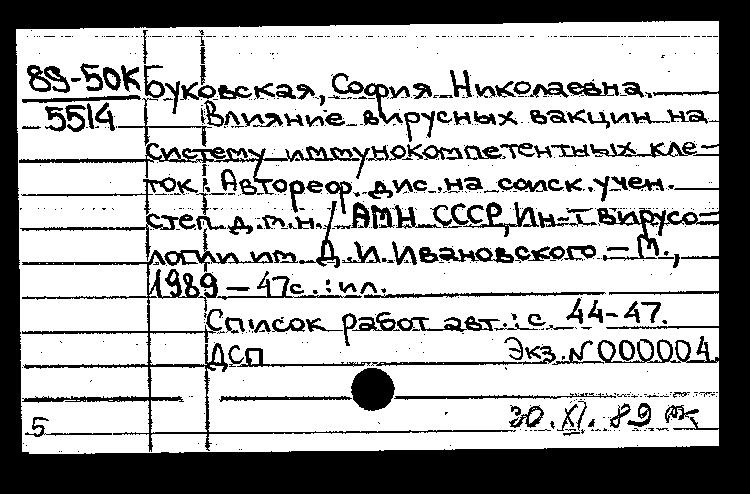 89-50К
5514
Буковская, София Николаевна.
Влияние вирусных вакцин на
систему иммунокомпетентных кле-
ток: Автореф. дис. на соиск. учен.
степ. д.м.н. / АМН СССР, Ин-т вирусо-
логии им. Д.И. Ивановского. – М.,
1989 – 47с.: ил.
Список работ авт.: с. 44-47.
ДСП Экз. N 000004.
30.XI.89
5